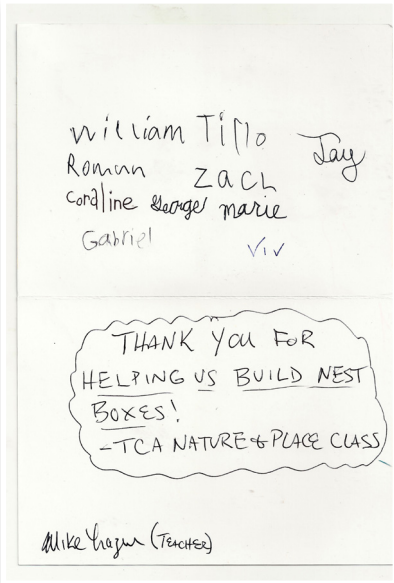 William Tillo
Jay
Roman Zach
Coraline George marie
Gabriel Viv
THANK YOU FOR
HELPING US BUILD NEST
BOXES!
-TCA NATURE & PLACE CLASS
Mike (TEACHER)